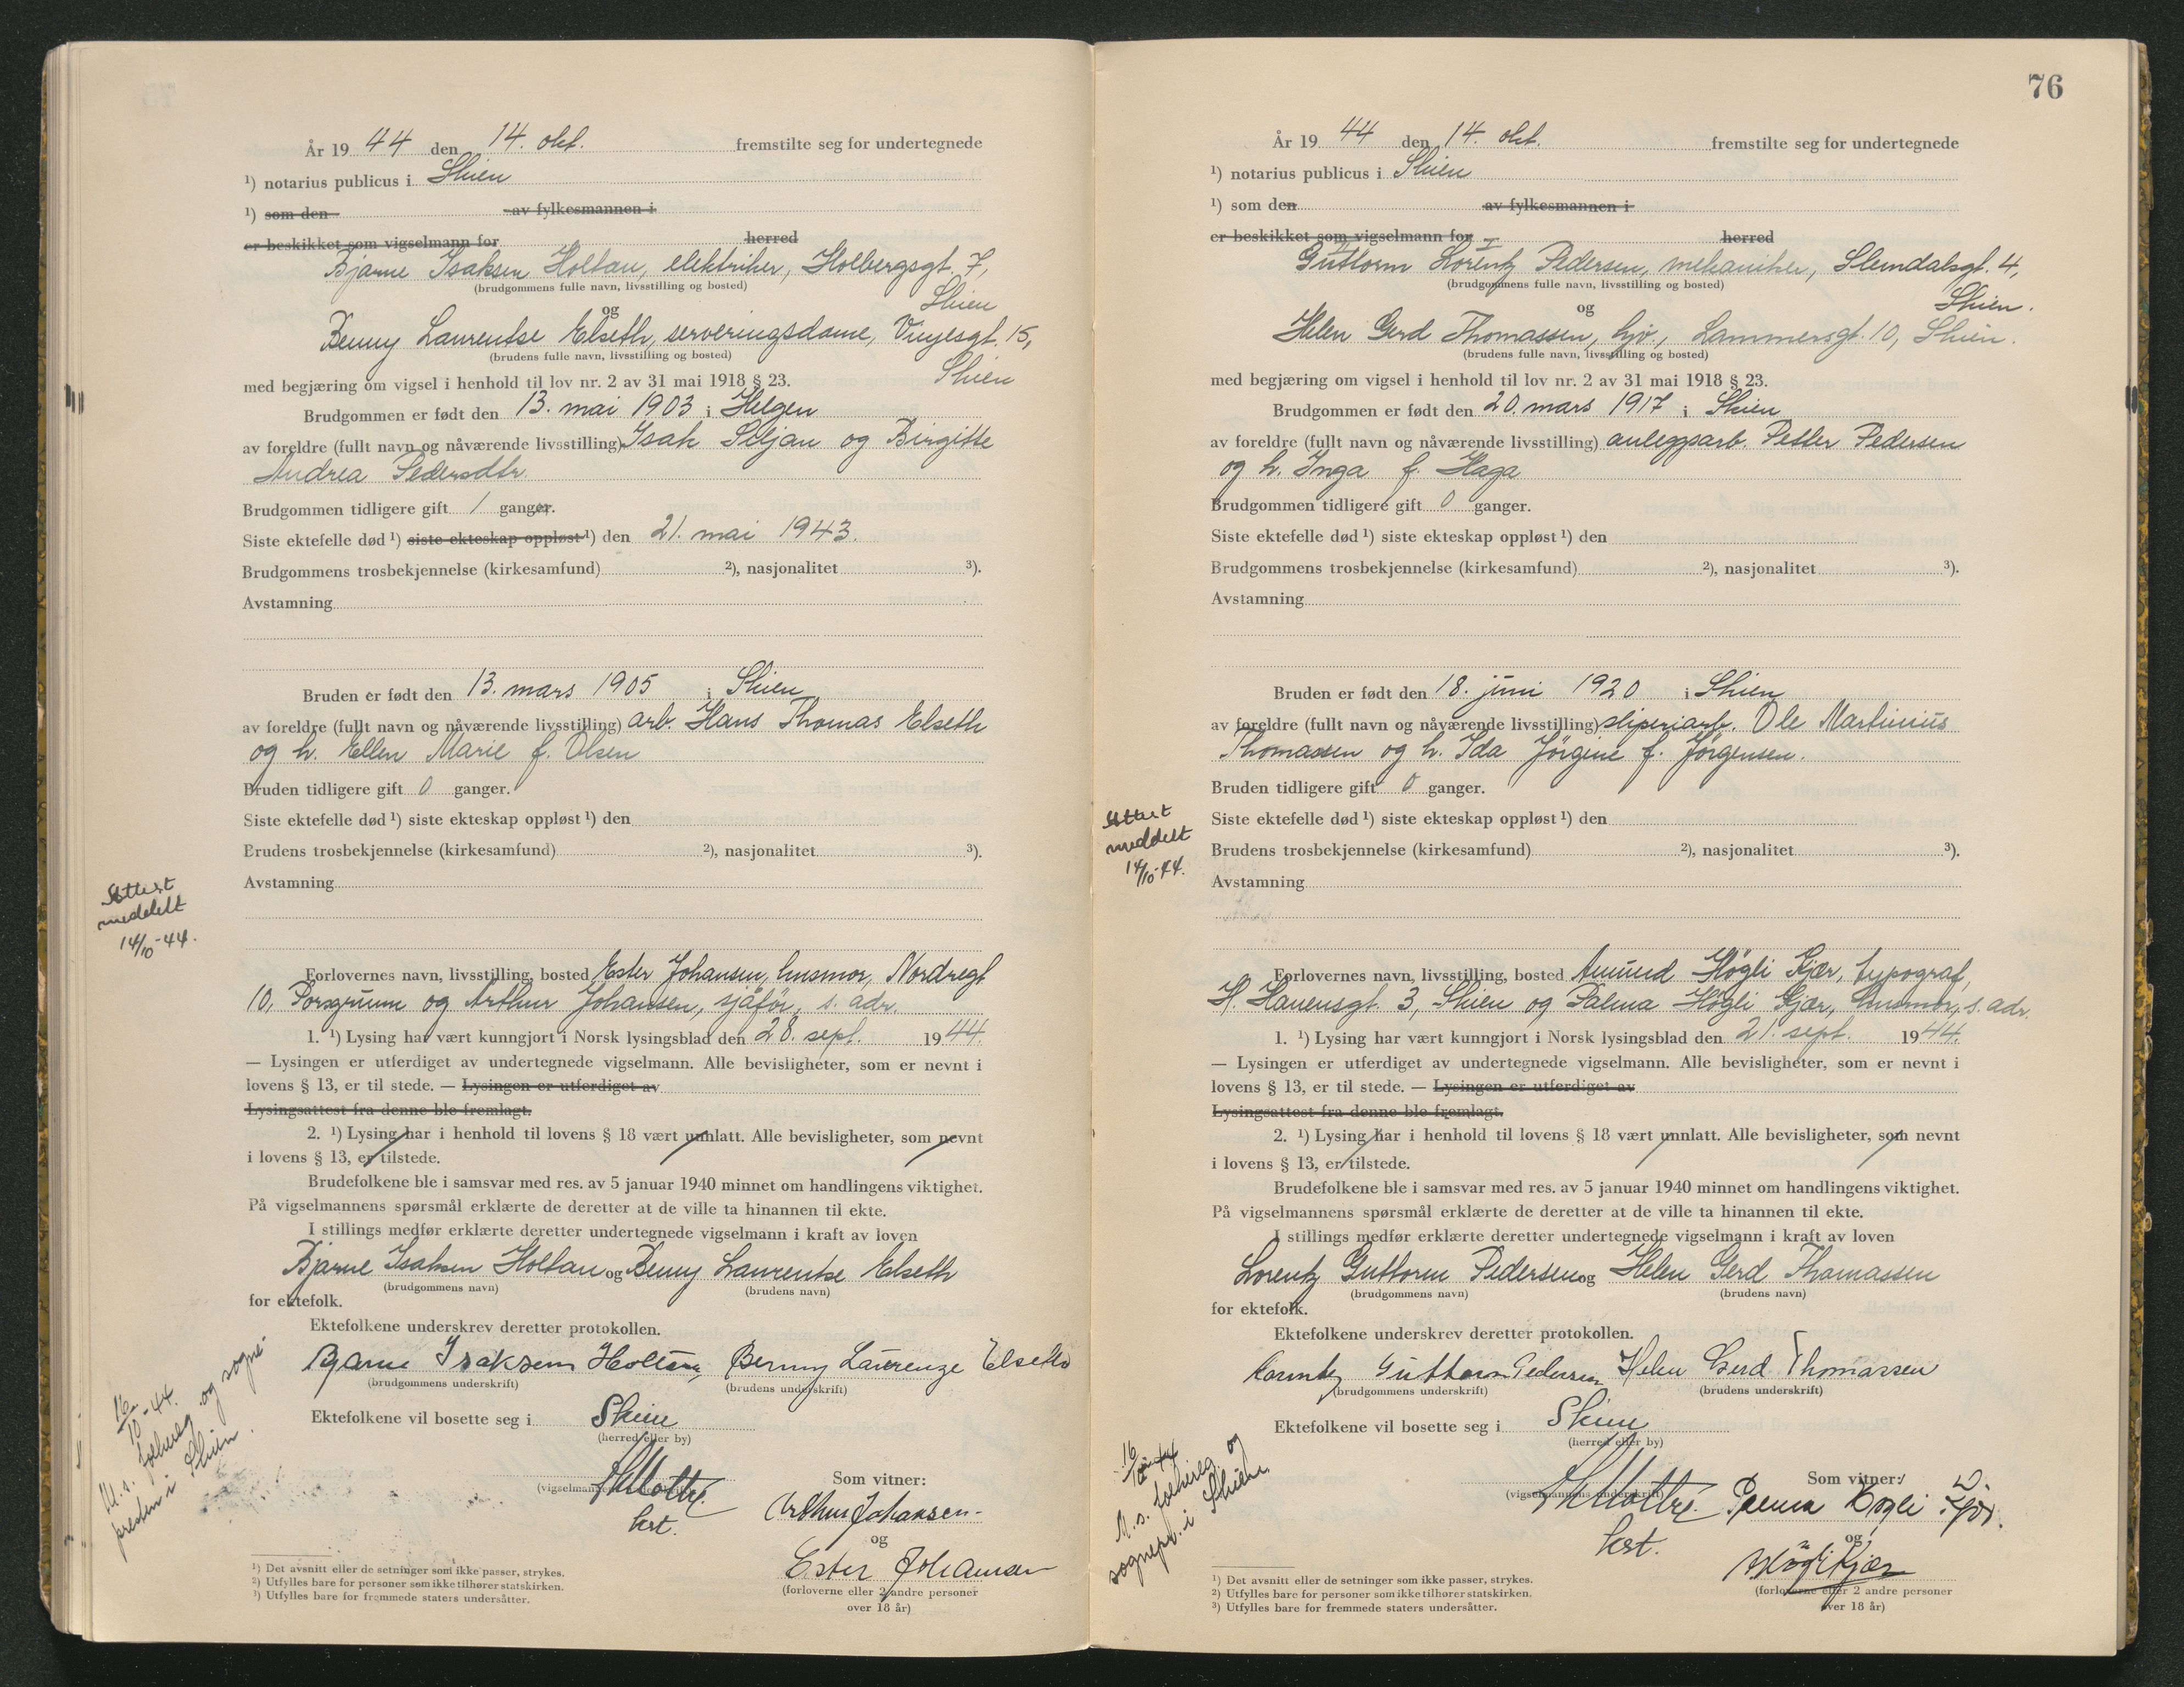 År 19 44 den 14. okt. fremstilte seg for undertegnede
¹) notarius publicus i Skien
¹) som den av fylkesmannen i
er beskikket som vigselmann for herred
Bjarne Isaksen Holtan, elektriker, Holbergsgt. 7,
(brudgommens fulle navn, livsstilling og bosted)
Skien
og
Benny Laurentse Elseth, serveringsdame, Vinjesgt. 15,
(brudens fulle navn, livsstilling og bosted)
Skien
med begjæring om vigsel i henhold til lov nr. 2 av 31 mai 1918 § 23.
Brudgommen er født den 13. mai 1903 i Helgen
av foreldre (fullt navn og nåværende livsstilling) Isak Siljan og Birgitte
Andrea Pedersdtr.
Brudgommen tidligere gift 1 ganger.
Siste ektefelle død ¹) siste ekteskap oppløst ¹) den 21. mai 1943.
Brudgommens trosbekjennelse (kirkesamfund) ²), nasjonalitet ³).
Avstamning
Bruden er født den 13. mars 1905 i Skien
av foreldre (fullt navn og nåværende livsstilling) arb. Hans Thomas Elseth
og h. Ellen Marie f. Olsen
Bruden tidligere gift 0 ganger.
Siste ektefelle død ¹) siste ekteskap oppløst ¹) den
Brudens trosbekjennelse (kirkesamfund) ²), nasjonalitet ³).
Avstamning
Attest
meddelt
14/10-44.
Forlovernes navn, livsstilling, bosted Ester Johansen, husmor, Nordregt
10, Porsgrunn og Arthur Johansen, sjåfør, s. adr.
1. ¹) Lysing har vært kunngjort i Norsk lysingsblad den 28. sept. 1944.
— Lysingen er utferdiget av undertegnede vigselmann. Alle bevisligheter, som er nevnt i
lovens § 13, er til stede. — Lysingen er utferdiget av
Lysingsattest fra denne ble fremlagt.
2. ¹) Lysing har i henhold til lovens § 18 vært unnlatt. Alle bevisligheter, som nevnt
i lovens § 13, er tilstede.
Brudefolkene ble i samsvar med res. av 5 januar 1940 minnet om handlingens viktighet.
På vigselmannens spørsmål erklærte de deretter at de ville ta hinannen til ekte.
I stillings medfør erklærte deretter undertegnede vigselmann i kraft av loven
Bjarne Isaksen Holtan og Benny Laurentse Elseth
(brudgommens navn) (brudens navn)
for ektefolk.
Ektefolkene underskrev deretter protokollen.
Bjarne Isaksen Holtan, Benny Laurenze Elseth
(brudgommens underskrift) (brudens underskrift)
Ektefolkene vil bosette seg i Skien
(herred eller by)
16/10-44.
M. s. folkereg. og sogne
presten i Skien.
(vigselmannens underskrift) Som vitner:
Arthur Johansen
og
Ester Johansen
(forloverne eller 2 andre personer
over 18 år)
¹) Det avsnitt eller de setninger som ikke passer, strykes.
²) Utfylles bare for personer som ikke tilhører statskirken.
³) Utfylles bare for fremmede staters undersåtter.
76
År 19 44 den 14. okt. fremstilte seg for undertegnede
¹) notarius publicus i Skien
¹) som den av fylkesmannen i
er beskikket som vigselmann for herred
Guttorm Lorentz Pedersen, mekaniker, Slemdalsgt. 4,
(brudgommens fulle navn, livsstilling og bosted)
Skien.
og
Helen Gerd Thomassen, hjv., Lammersgt. 10, Skien.
(brudens fulle navn, livsstilling og bosted)
med begjæring om vigsel i henhold til lov nr. 2 av 31 mai 1918 § 23.
Brudgommen er født den 20. mars 1917 i Skien
av foreldre (fullt navn og nåværende livsstilling) anleggsarb. Petter Pedersen
og h. Inga f. Haga
Brudgommen tidligere gift 0 ganger.
Siste ektefelle død ¹) siste ekteskap oppløst ¹) den
Brudgommens trosbekjennelse (kirkesamfund) ²), nasjonalitet ³).
Avstamning
Bruden er født den 18. juni 1920 i Skien
av foreldre (fullt navn og nåværende livsstilling) sliperiarb. Ole Martinius
Thomassen og h. Ida Jörgine f. Jörgensen.
Bruden tidligere gift 0 ganger.
Siste ektefelle død ¹) siste ekteskap oppløst ¹) den
Brudens trosbekjennelse (kirkesamfund) ²), nasjonalitet ³).
Avstamning
Attest
meddelt
14/10-44.
Forlovernes navn, livsstilling, bosted Amund Høgli Kjær, typograf,
H. Hanensgt. 3, Skien og Palma Høgli Kjær, husmor, s. adr.
1. ¹) Lysing har vært kunngjort i Norsk lysingsblad den 21. sept. 1944.
— Lysingen er utferdiget av undertegnede vigselmann. Alle bevisligheter, som er nevnt i
lovens § 13, er til stede. — Lysingen er utferdiget av
Lysingsattest fra denne ble fremlagt.
2. ¹) Lysing har i henhold til lovens § 18 vært unnlatt. Alle bevisligheter, som nevnt
i lovens § 13, er tilstede.
Brudefolkene ble i samsvar med res. av 5 januar 1940 minnet om handlingens viktighet.
På vigselmannens spørsmål erklærte de deretter at de ville ta hinannen til ekte.
I stillings medfør erklærte deretter undertegnede vigselmann i kraft av loven
Lorentz Guttorm Pedersen og Helen Gerd Thomassen
(brudgommens navn) (brudens navn)
for ektefolk.
Ektefolkene underskrev deretter protokollen.
Lorentz Guttorm Pedersen Helen Gerd Thomassen
(brudgommens underskrift) (brudens underskrift)
Ektefolkene vil bosette seg i Skien
(herred eller by)
16/10-44
M. s. folkereg. og
sognepr. i Skien
(vigselmannens underskrift) Som vitner:
Palma Høgli Kjær.
og
A Høgli Kjær
(forloverne eller 2 andre personer
over 18 år)
¹) Det avsnitt eller de setninger som ikke passer, strykes.
²) Utfylles bare for personer som ikke tilhører statskirken.
³) Utfylles bare for fremmede staters undersåtter.